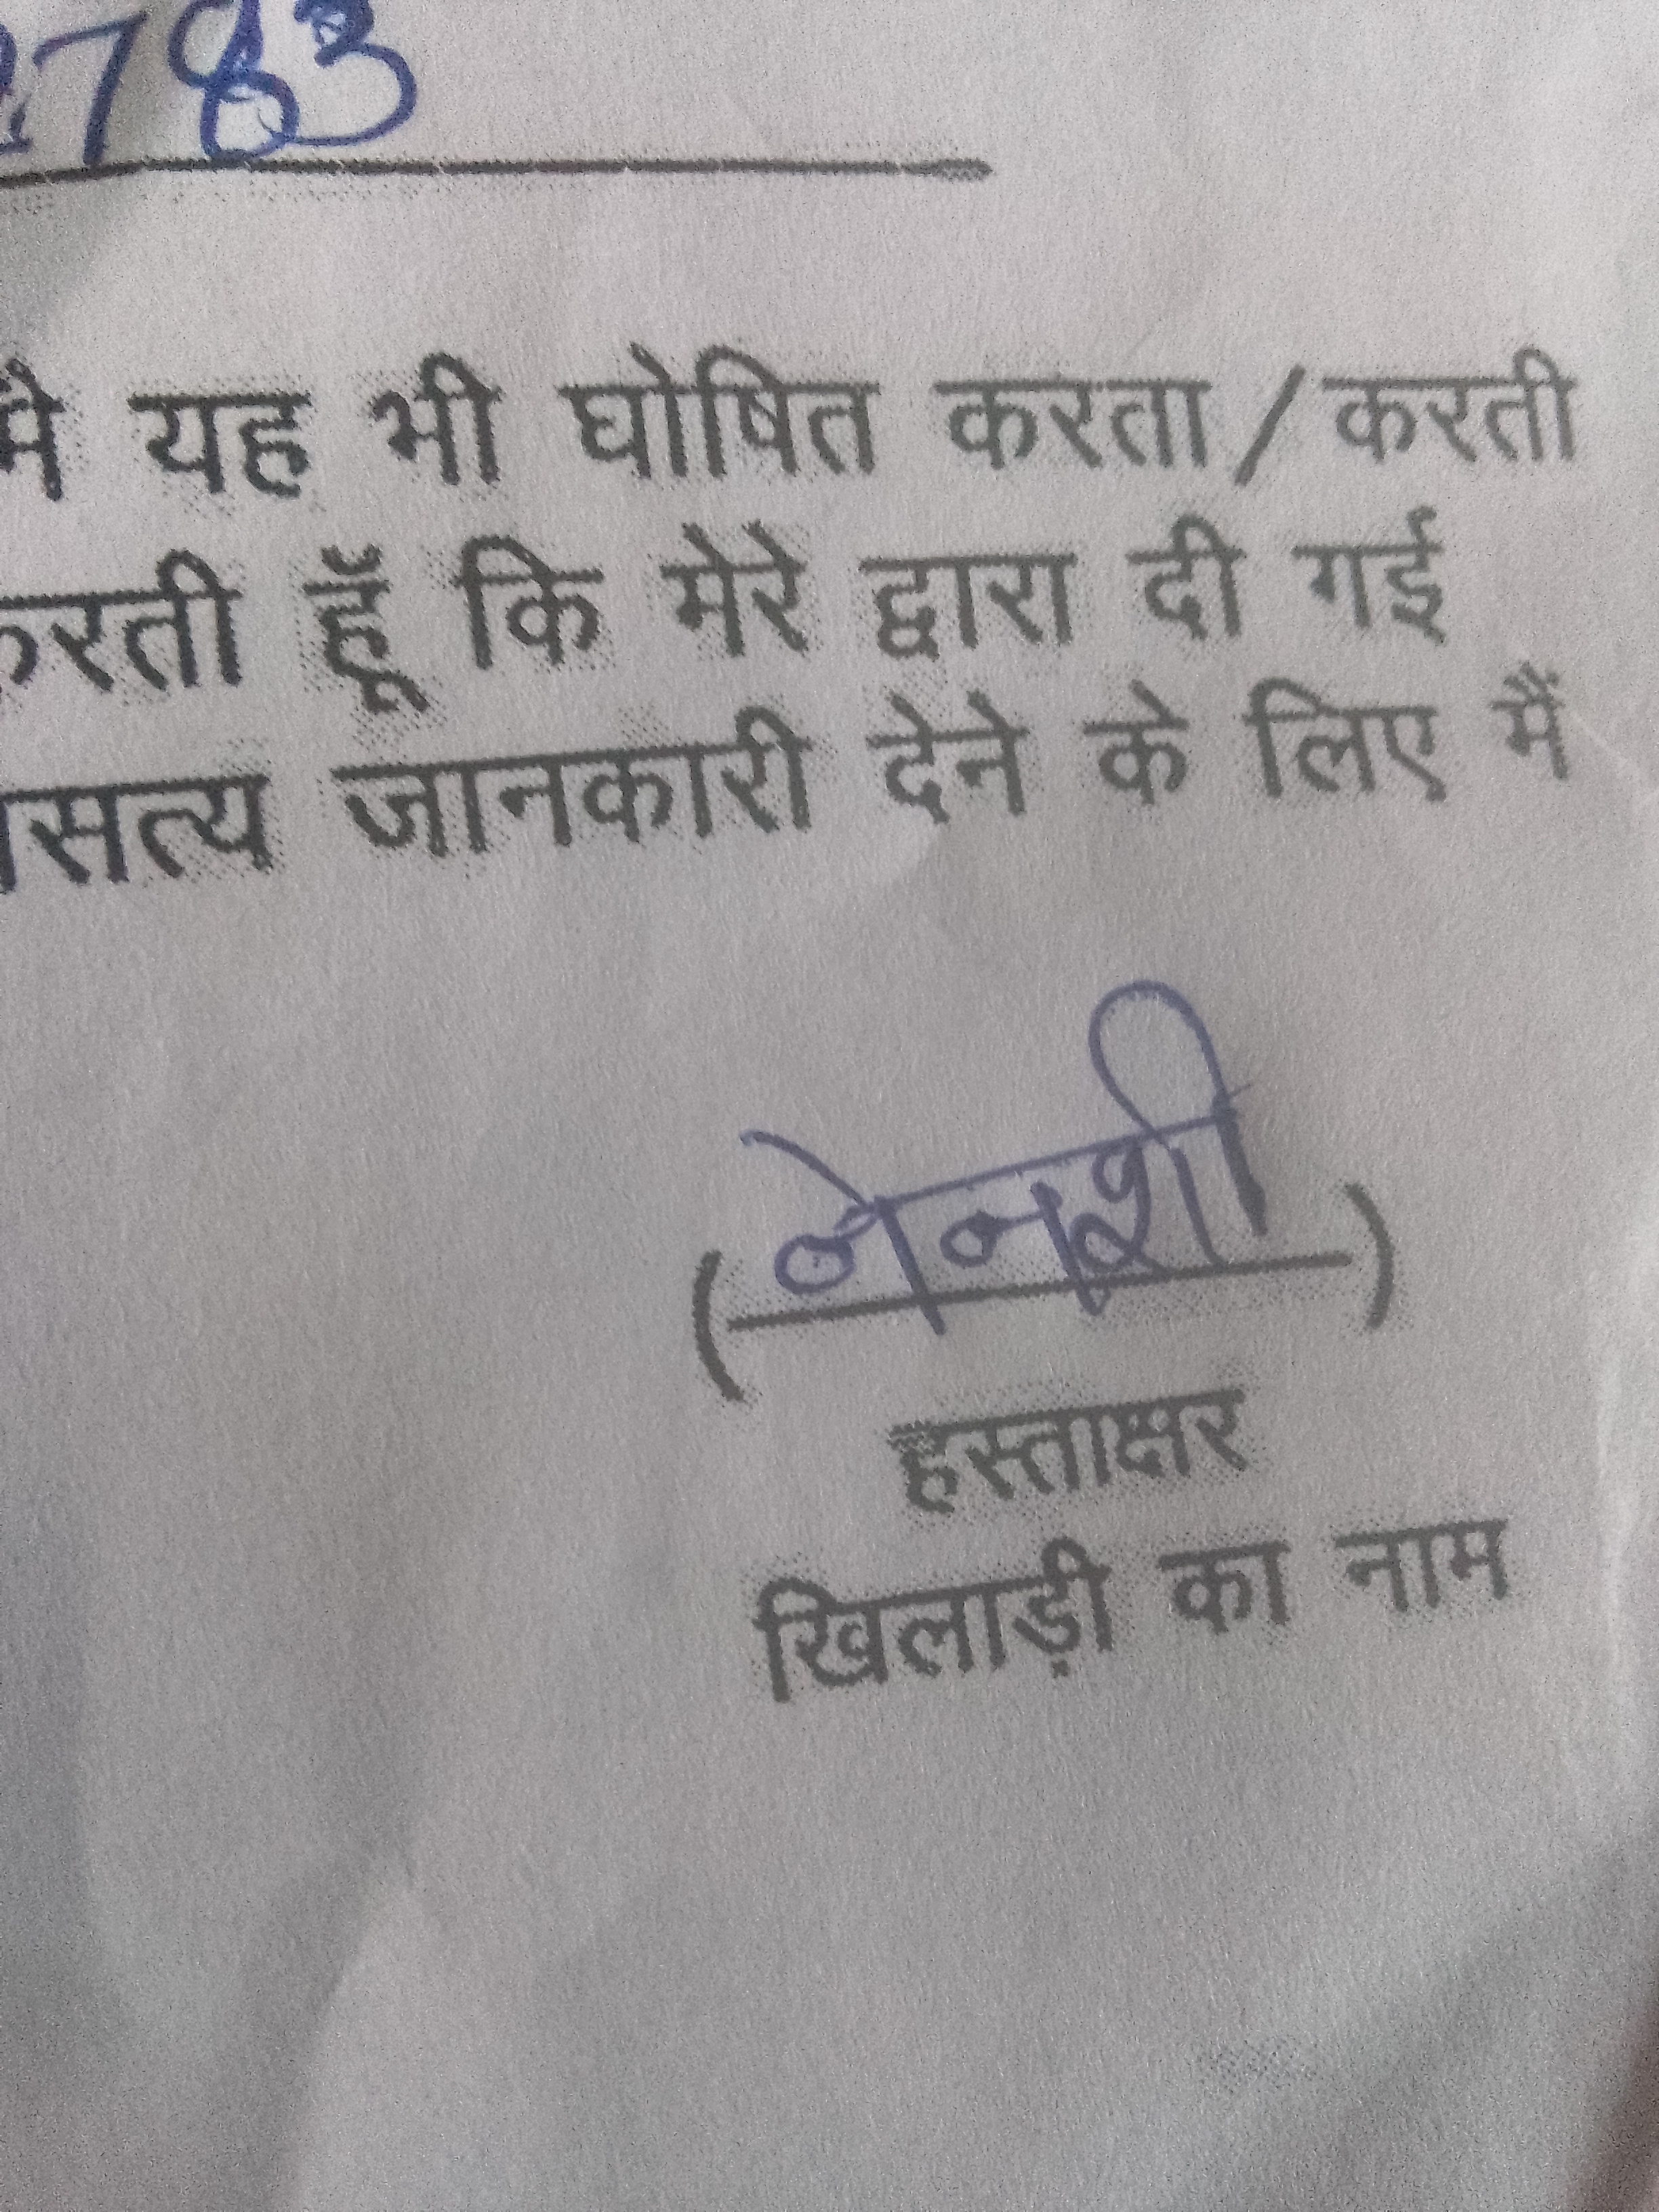 2783
मै यह भी घोषित करता/करती
करती हूँ कि मेरे द्वारा दी गई
असत्य जानकारी देने के लिए मैं
(नेनशी)
हस्ताक्षर
खिलाड़ी का नाम